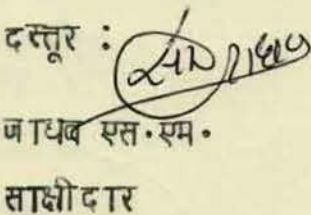 दस्तूर :
जाधव एस.एम.
साक्षीदार